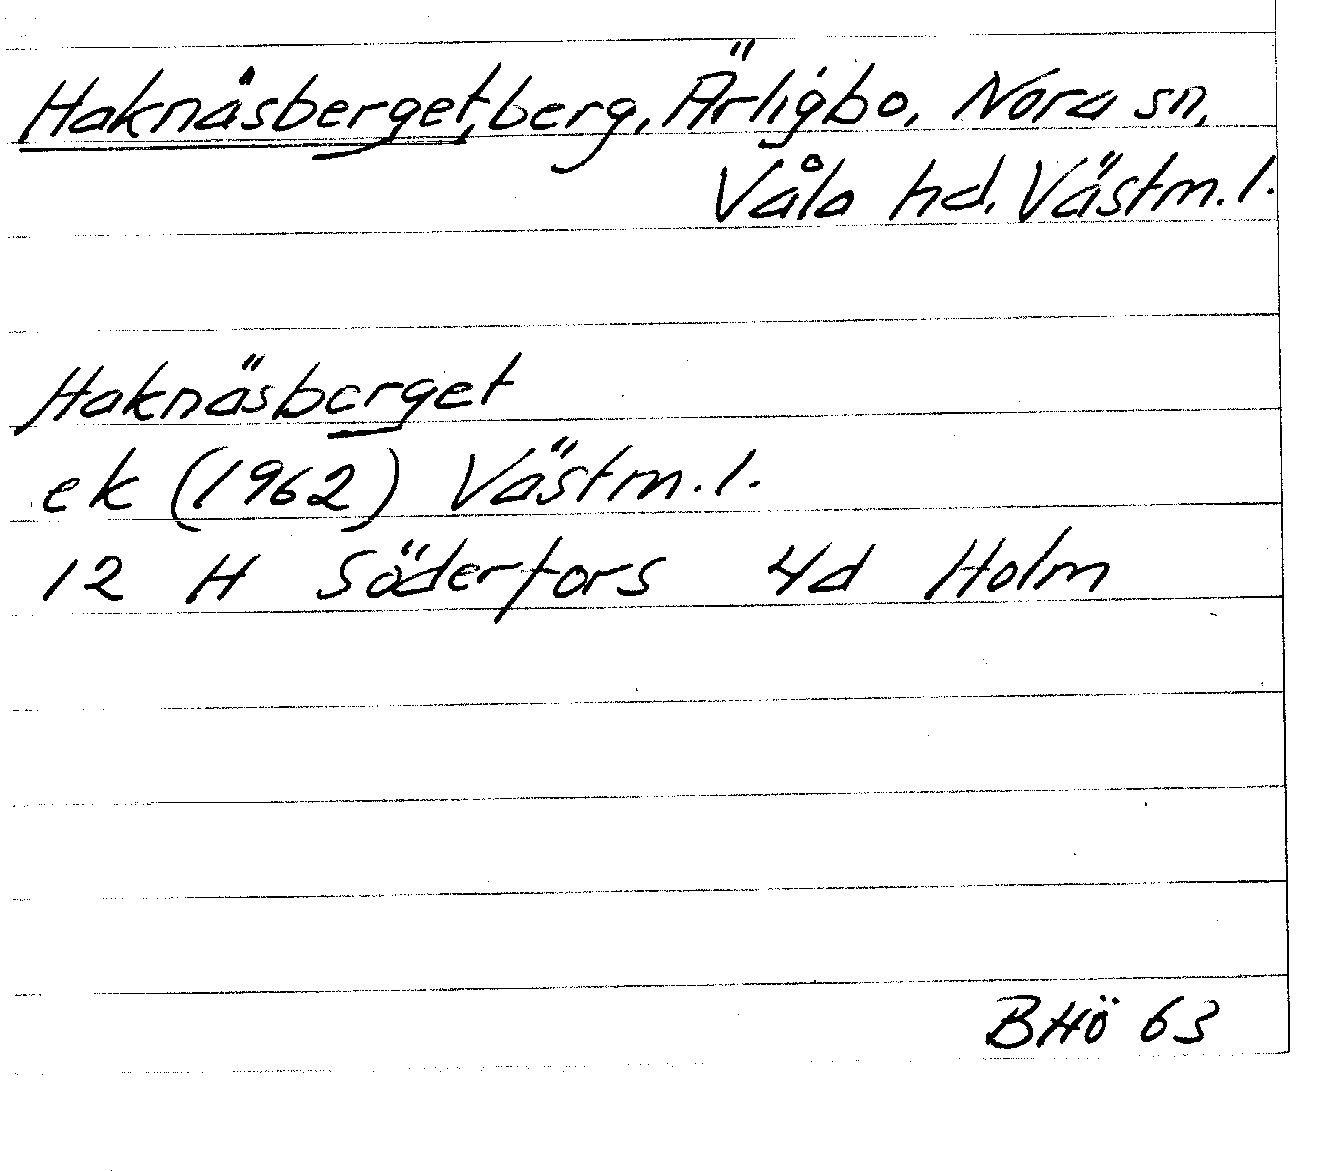 Haknäsberget, berg, Ärligbo, Nora sn,
Våla hd. Västm.l.
Haknäsberget
ek (1962) Västm.l.
12 H Söderfors 4d Holm
BHö 63